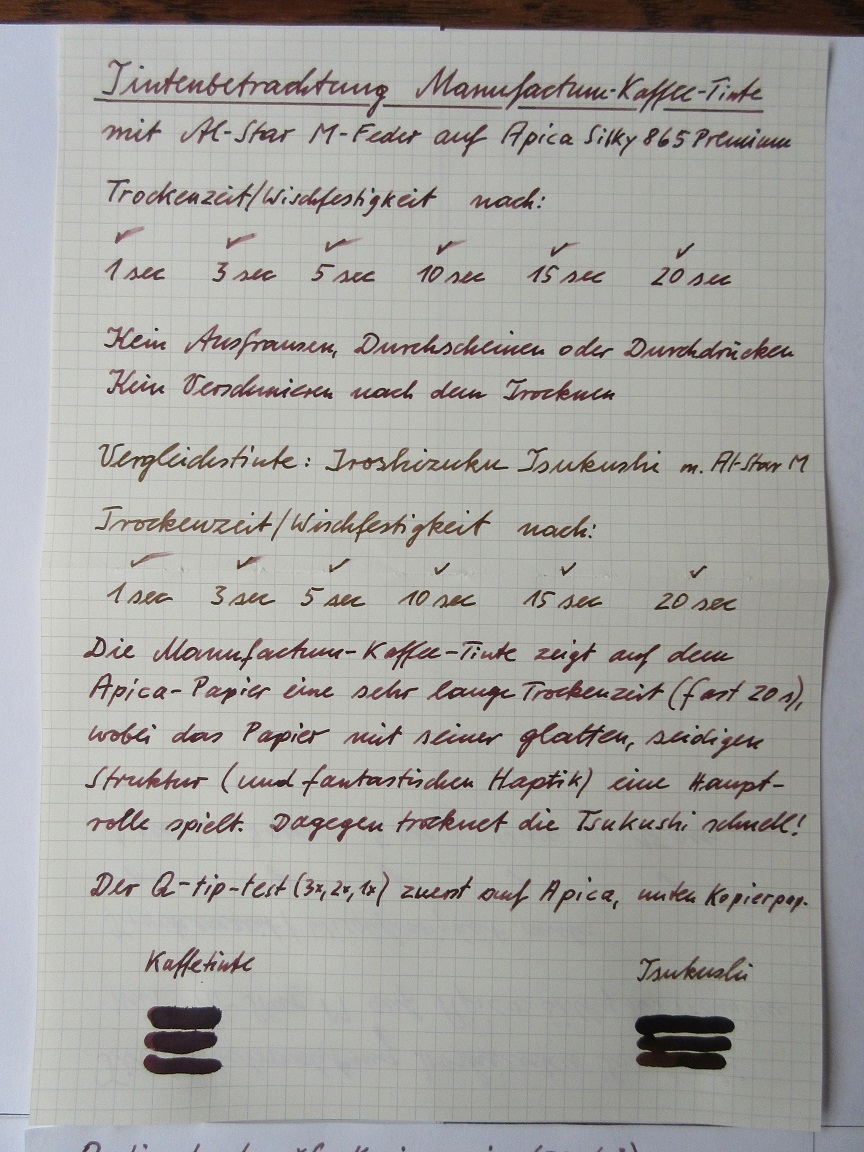 Tintenbetrachtung Manufactum-Kaffee-Tinte
mit Al-Star M-Feder auf Apica Silky 865 Premium
Trockenzeit/Wischfestigkeit nach:
1 sec 3 sec 5 sec 10 sec 15 sec 20 sec
Kein Ausfransen, Durchscheinen oder Durchdrücken
Kein Verschmieren nach dem Trocknen
Vergleichstinte: Iroshizuku Tsukushi m. Al-Star M
Trockenzeit/Wischfestigkeit nach:
1 sec 3 sec 5 sec 10 sec 15 sec 20 sec
Die Manufactum-Kaffee-Tinte zeigt auf dem
Apica-Papier eine sehr lange Trockenzeit (fast 20 s),
wobei das Papier mit seiner glatten, seidigen
Struktur (und fantastischen Haptik) eine Haupt-
rolle spielt. Dagegen trocknet die Tsukushi schnell!
Der Q-tip-test (3x, 2x, 1x) zuerst auf Apica, unten Kopierpap.
Kaffetinte Tsukushi